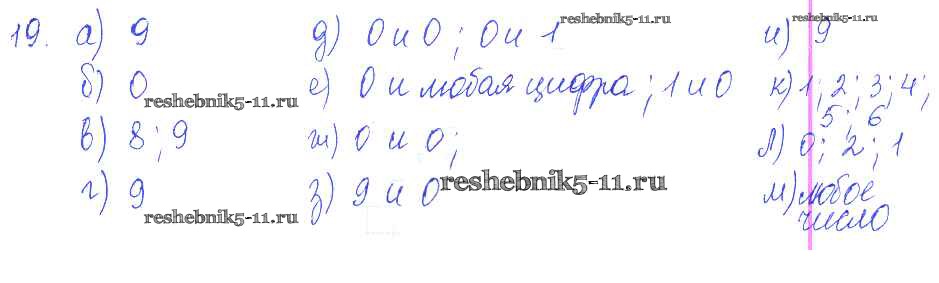 19. а) 9 д) 0 и 0; 0 и 1 и) 9
reshebnik5-11.ru reshebnik5-11.ru
б) 0 е) 0 и любая цифра; 1 и 0 к) 1; 2; 3; 4;
5; 6
reshebnik5-11.ru
в) 8; 9 ж) 0 и 0; л) 0; 2; 1
г) 9 з) 9 и 0 м) любое
число
reshebnik5-11.ru
reshebnik5-11.ru